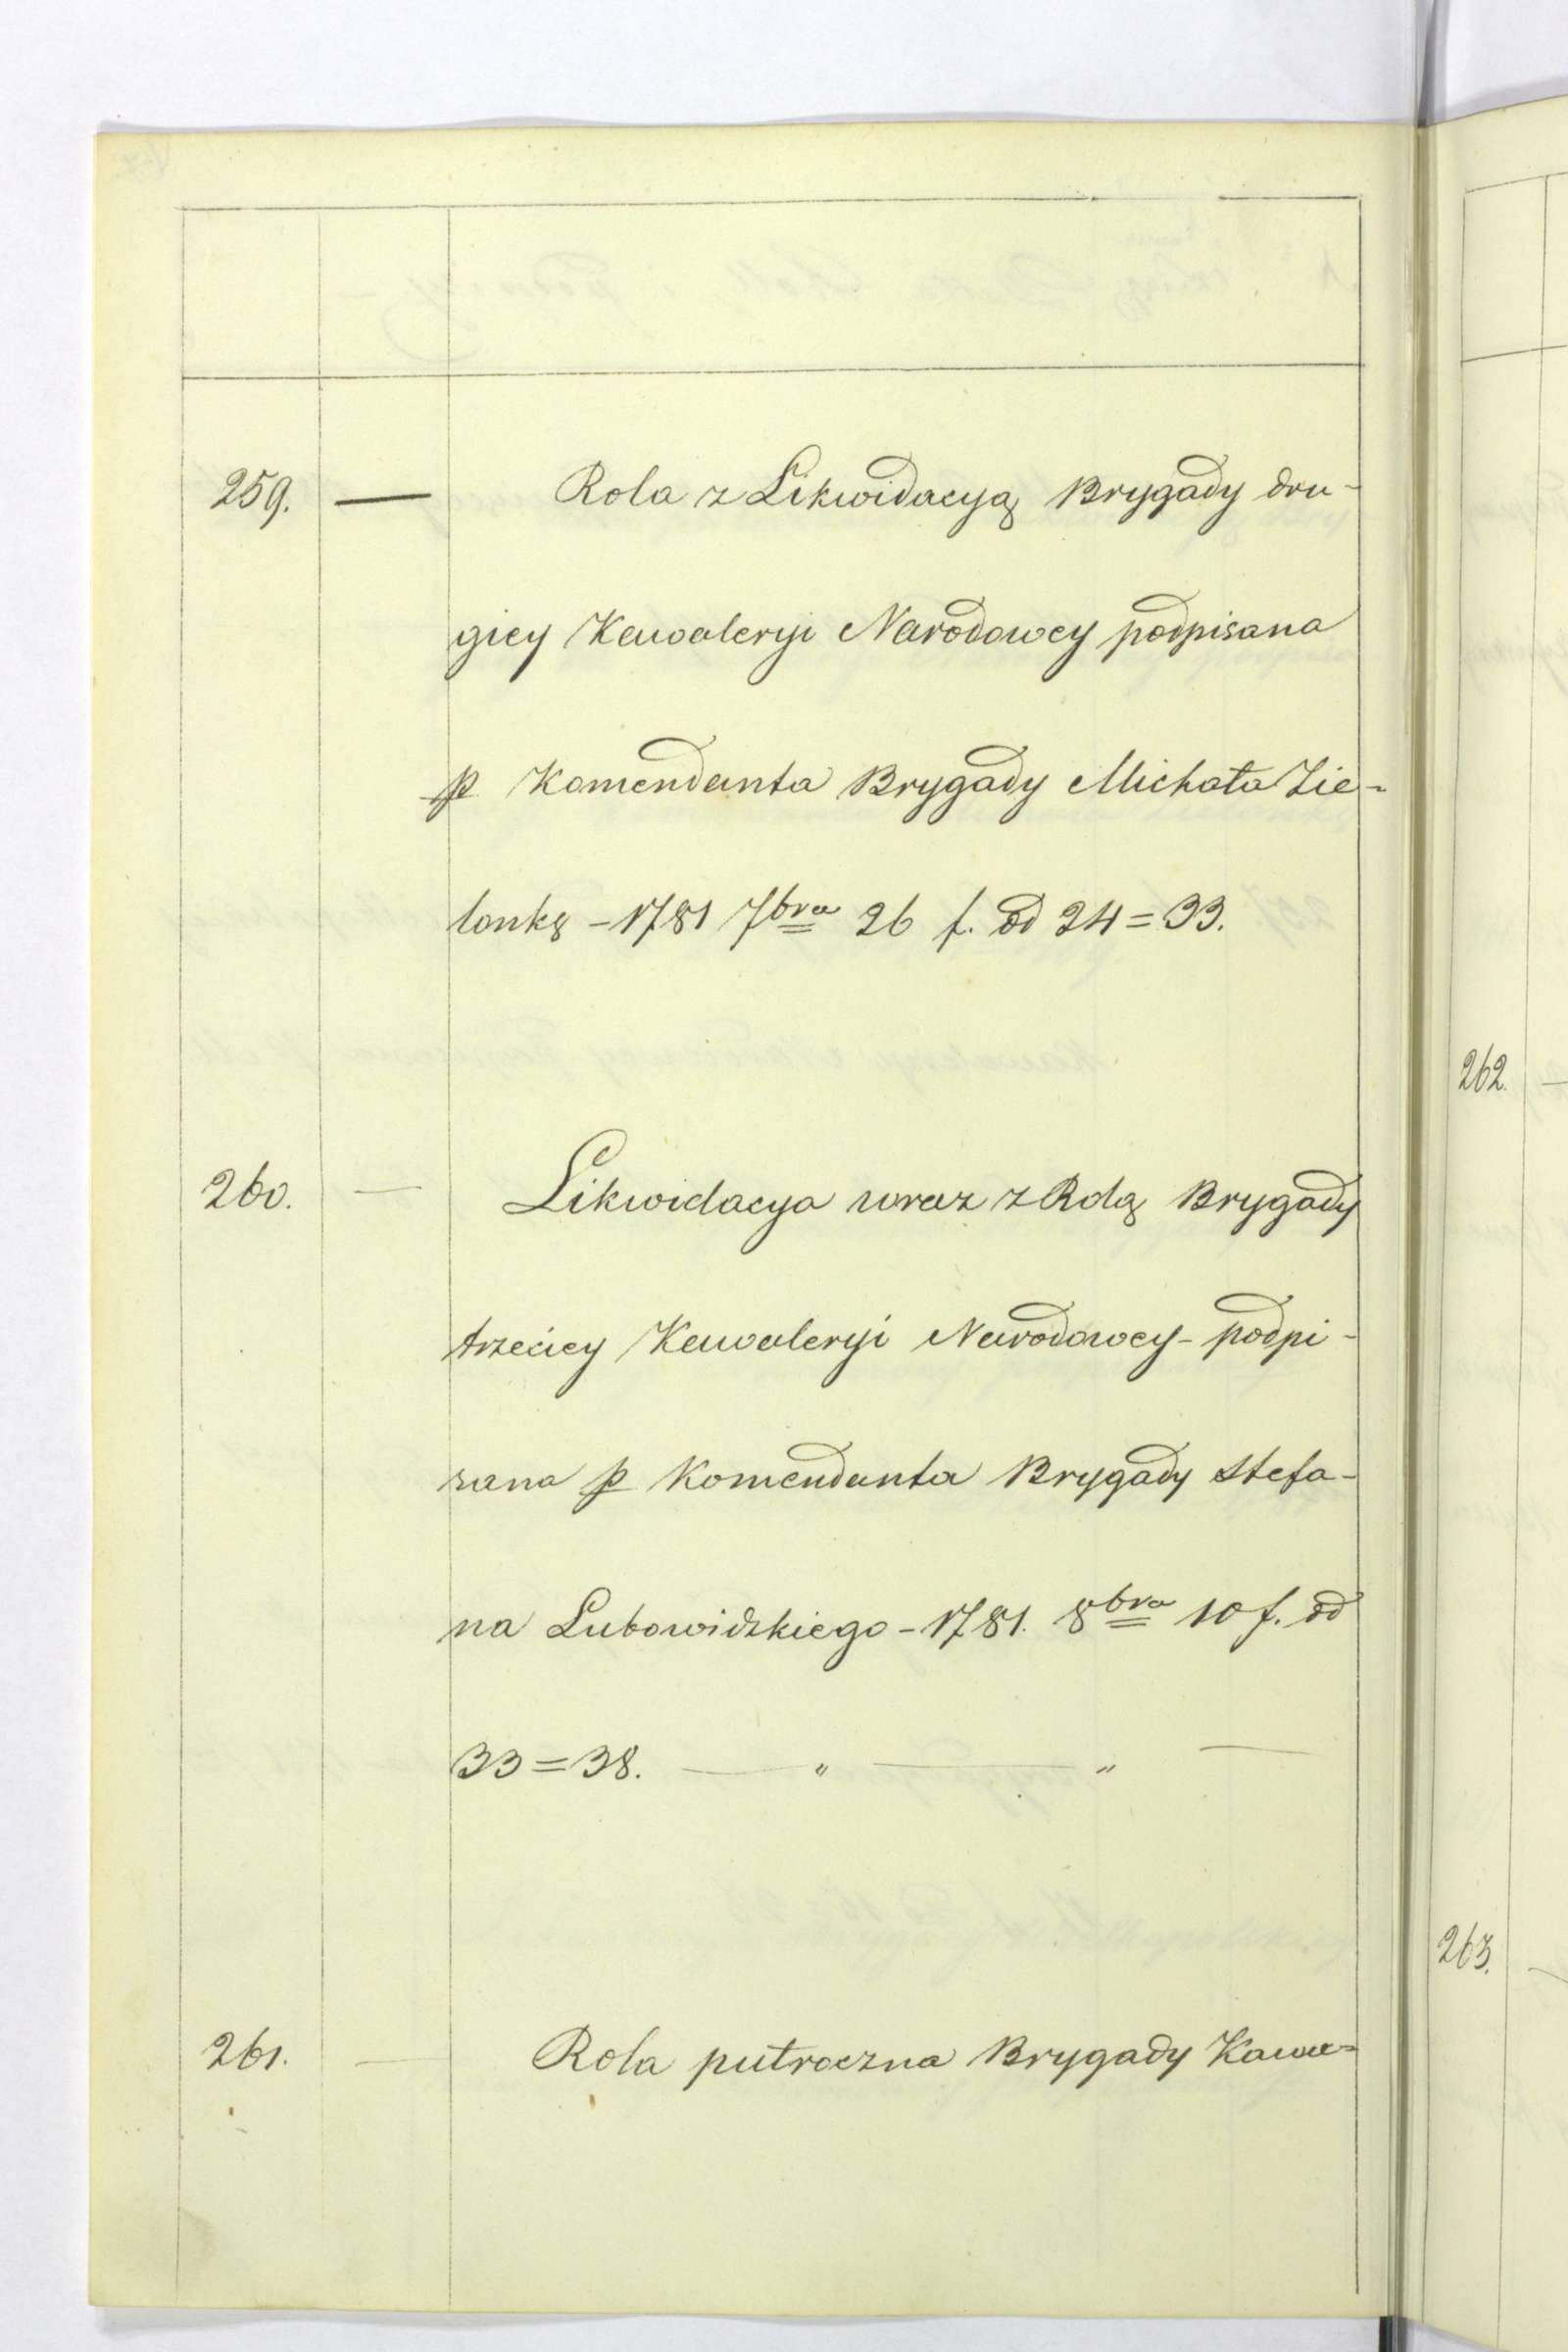 259. — Rola z Likwidacyą Brygady dru-
giey Kawaleryi Narodowey podpisana
p Komendanta Brygady Michała Zie-
lonkę - 1781 7bra 26 f. od 24 = 33.
260. — Likwidacya wraz z Rolą Brygady
trzeciey Kawaleryi Narodowey - podpi-
sana p Komendanta Brygady Stefa-
na Lubowidzkiego - 1781. 8bra 10 f. od
33 = 38. — " — " —
261. — Rola pułroczna Brygady Kawa-
262. —
263.